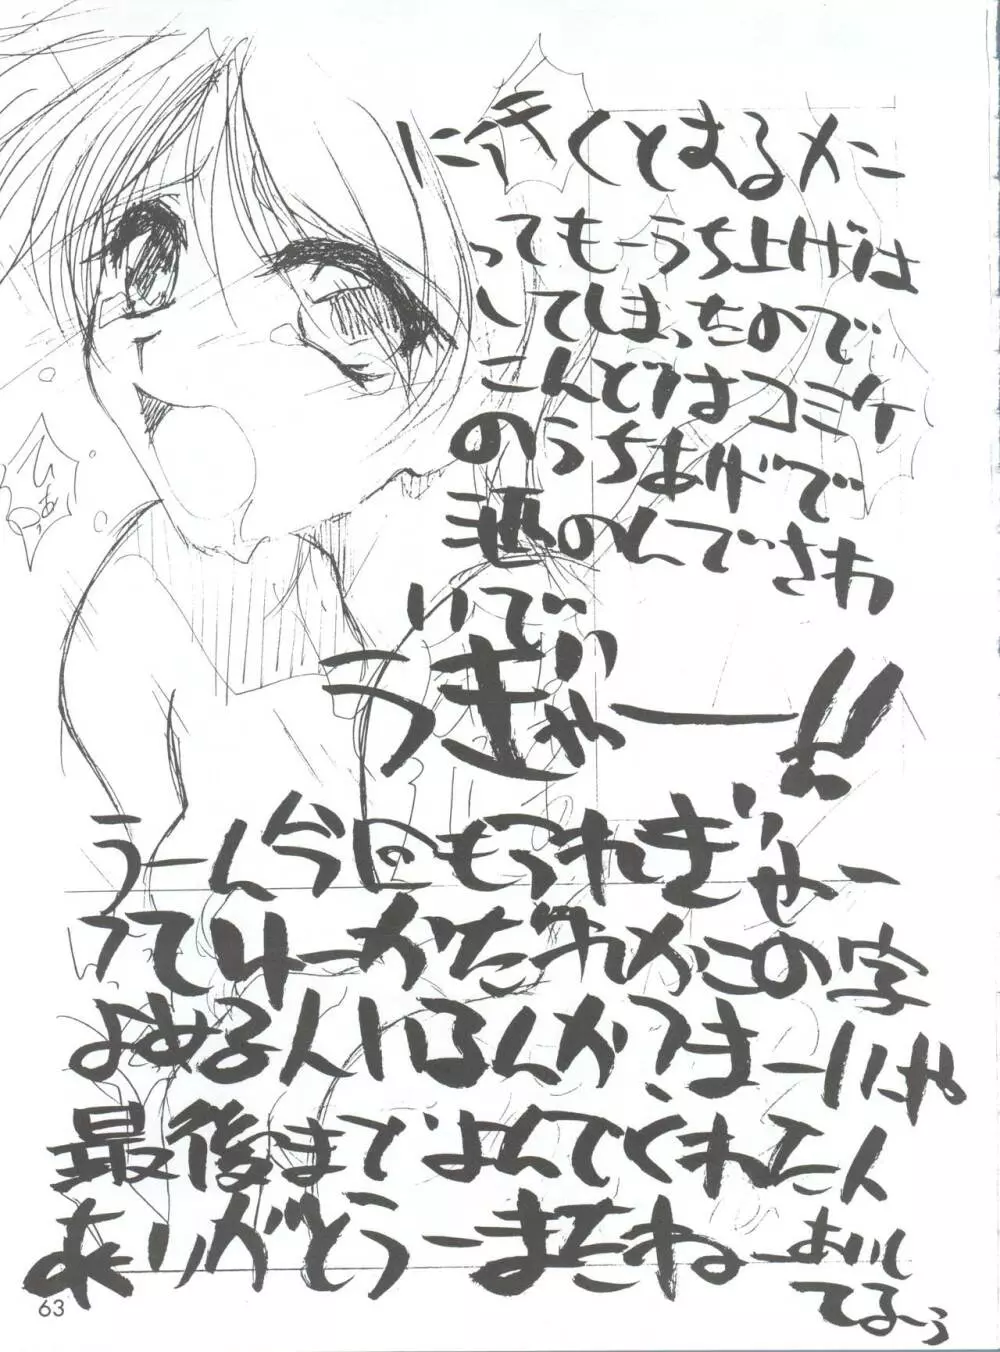 に行くとまるメン
ってもーうち上げは
してしまったので
こんどはコミケ
のうちあげで
酒のんでさわ
いで
うぎゃー!!
うーん今回もつれぎゃー
ってゆーかだれかこの字
よめる人いるんか?まーいいや
最後までよんでくれた人
ありがとうーまたねーあいし
てるーう
ひぁっ
63